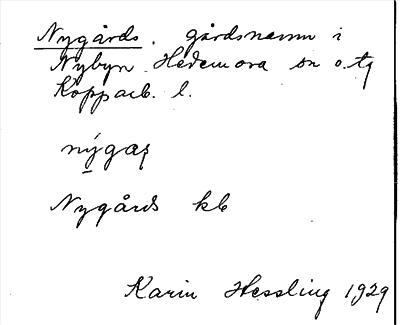 Nygårds. gårdsnamn i
Nybyn. Hedemora sn o. tg
Kopparb. l.
nýgaʂ
Nygårds kb
Karin Hessling 1929